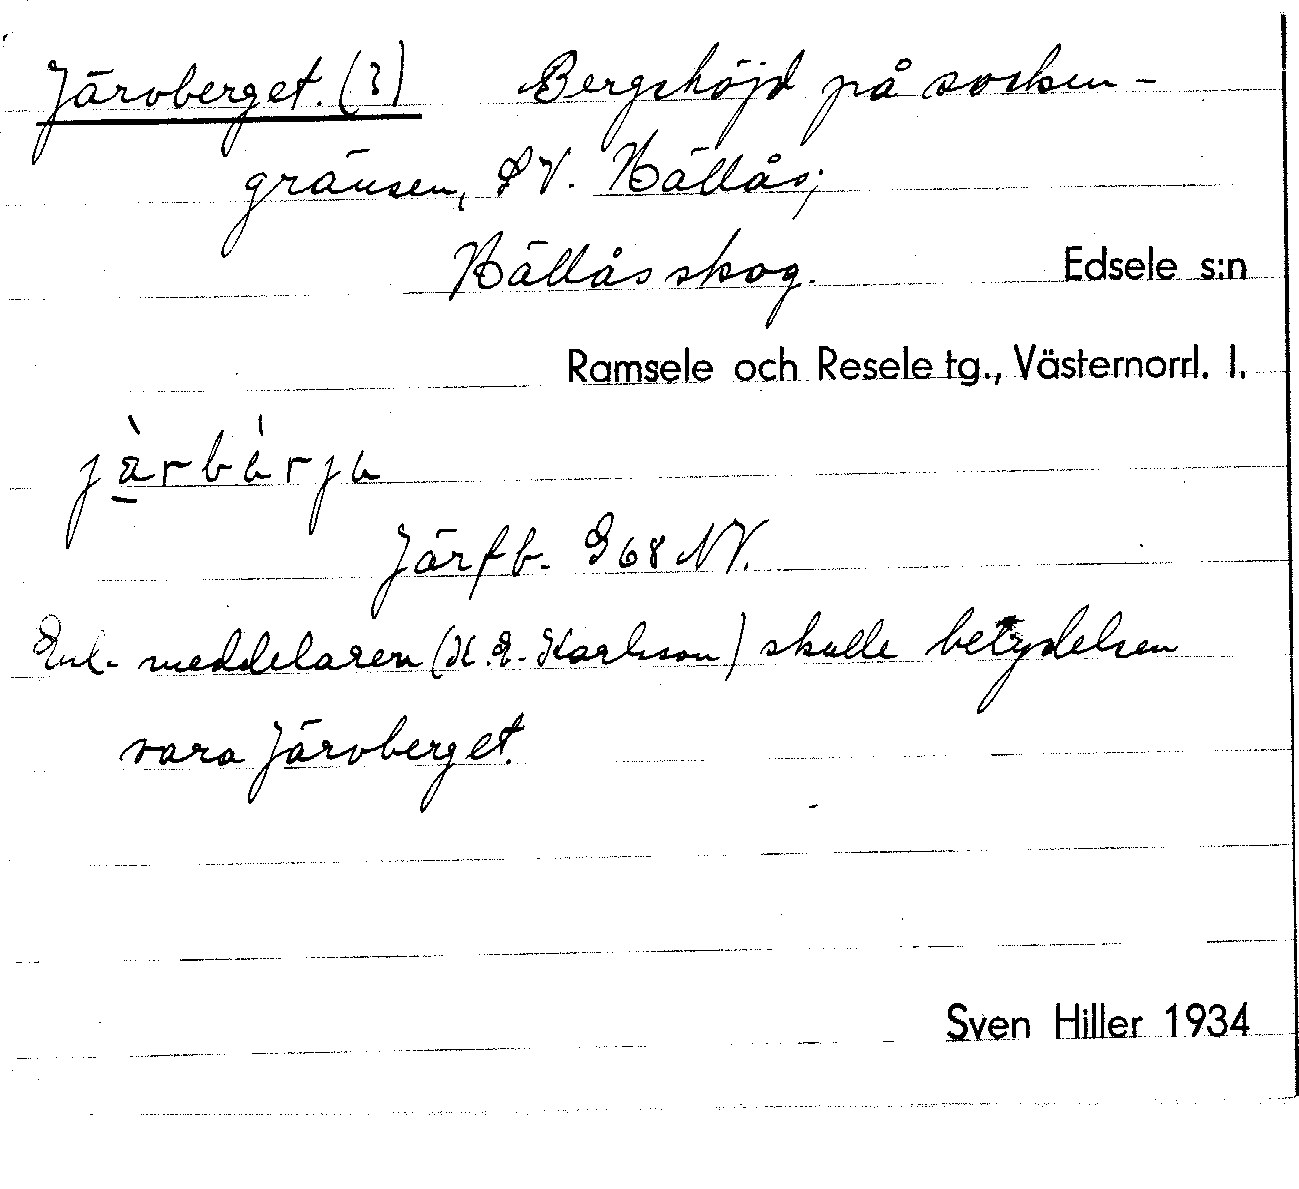 Järvberget. (3) Bergshöjd på socken-
gränsen, SV. Hällås;
Hällås skog. Edsele s:n
Ramsele och Resele tg., Västernorrl. l.
Järfb. G68 NV.
Enl. meddelaren (K.E. Karlsson) skulle betydelsen
vara Järvberget.
Sven Hiller 1934